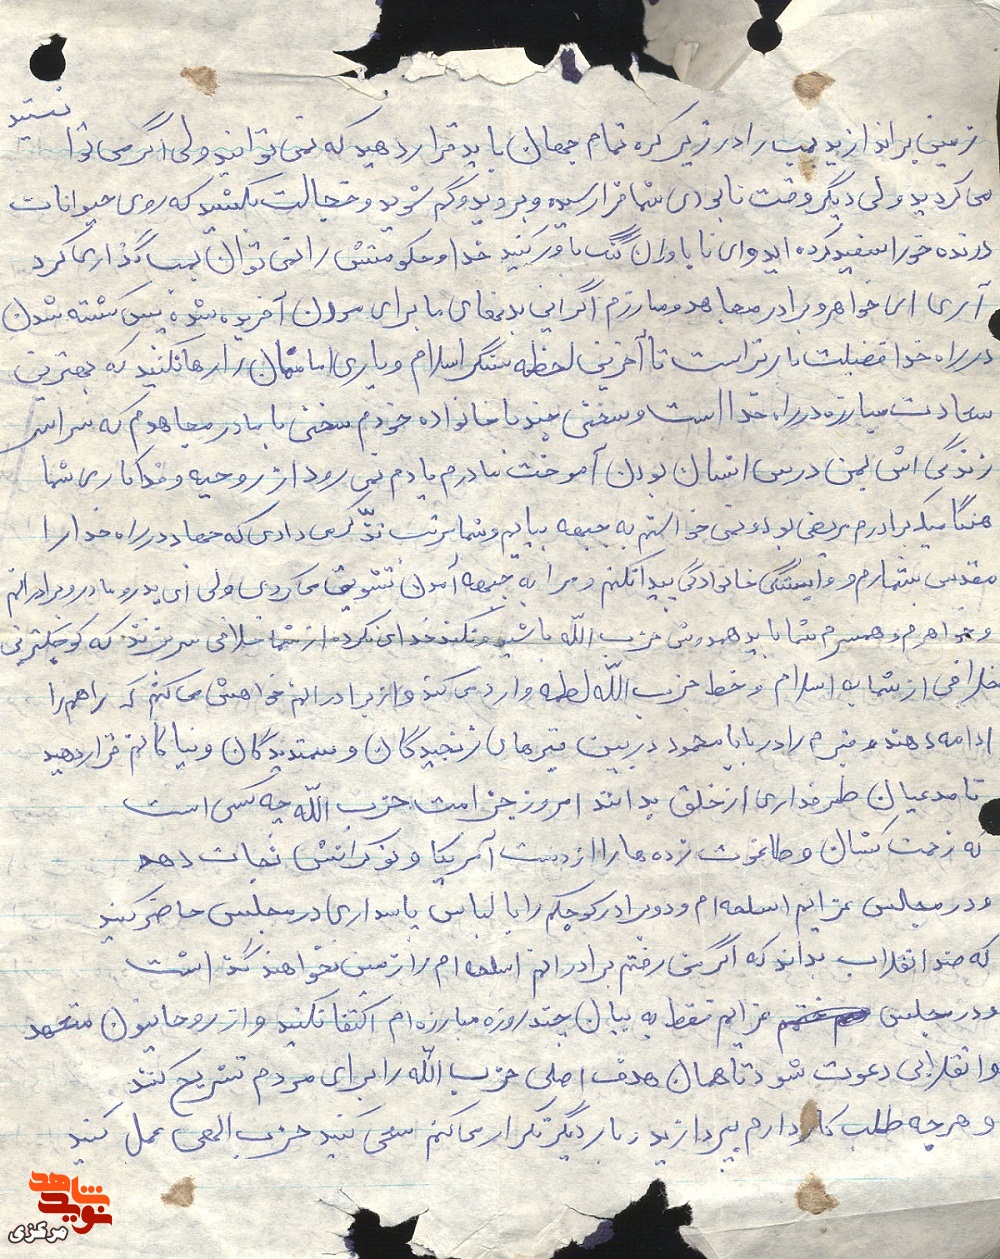 نستید
زمینی براندازید بمب را در زیر کره تمام جهان باید قرار دهید که نمی توانید ولی اگر می توا
می کردید ولی دیگر وقت نابودی شما فرا رسیده و بروید و گم شوید و خجالت بکشید که روی حیوانات
درنده خو را سفید کرده اید وای ناباوران گنگ باور کنید خدا و حکومتش را نمی توان بمب گذاری کرد
آری ای خواهر و برادر مجاهد و مبارزم اگر این بدنهای ما برای مردن آفریده شده پس کشته شدن
در راه خدا فضیلت بارتر است تا آخرین لحظه سنگر اسلام و یاری امامتان را رها نکنید که بهترین
سعادت مبارزه در راه خدا است و سخنی چند با خانواده خودم سخنی با مادر مجاهدم که سراسر
زندگی اش بمن درس انسان بودن آموخت مادرم یادم نمی رود از روحیه و فداکاری شما
هنگامیکه برادرم مریض بود و نمی خواستم به جبهه بیایم و شما مرتب تذکر می دادی که جهاد در راه خدا را
مقدس بشمارم و وابستگی خانوادگی پیدا نکنم و مرا به جبهه آمدن تشویق می کردی ولی ای پدر و مادر و برادرانم
و خواهرم و همسرم شما باید همدوش حزب الله باشید و نکند خدای نکرده از شما خلافی سر بزند که کوچکترین
خلافی از شما به اسلام و خط حزب الله لطمه وارد می کند و از برادرانم خواهش می کنم که راهم را
ادامه دهند و قبرم را در بابا محمود در بین قبرهای رنجیدگان و ستمدیدگان و نیاکانم قرار دهید
تا مدعیان طرفداری از خلق بدانند امروز جز است حزب الله چه کسی است
که زحمت کشان و طاغوت زده ها را از دست آمریکا و نوکرانش نجات دهد
و در مجالس عزایم اسلحه ام و دو برادر کوچکم را با لباس پاسداری در مجلس حاضر کنید
که ضد انقلاب بداند که اگر من رفتم برادرانم اسلحه ام را زمین نخواهند گذاشت
و در مجلس عزایم فقط به بیان چند روزه مبارزه ام اکتفا نکنید و از روحانیون متعهد
و انقلابی دعوت شود تا همان هدف اصلی حزب الله را برای مردم تشریح کنند
و هرچه طلب کار دارم بپردازید و بار دیگر تکرار می کنم سعی کنید حزب الهی عمل کنید
شاهد
نوید
مرکزی